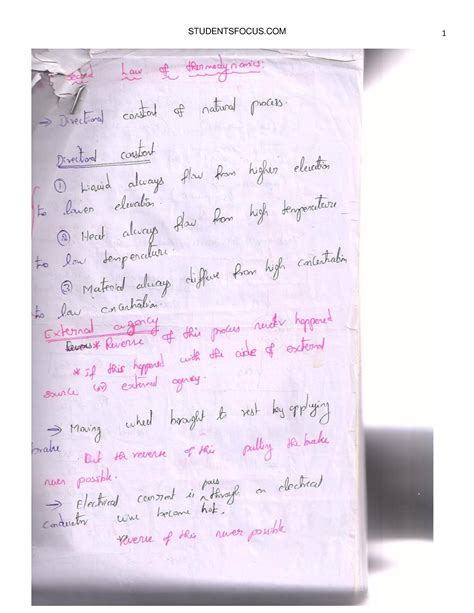 STUDENTSFOCUS.COM
1
Second Law of thermodynamics:
→ Directional constant of natural process.
Directional constant
① Liquid always flow from higher elevation
to lower elevation.
② Heat always flow from high temperature
to low temperature.
③ Material always diffuse from high concentration
to low concentration
External agency
* Reverse of this process never happened
* if this happened with the aide of external
source (or) external agency.
→ Moving wheel brought to rest by applying
brake. But the reverse of this pulling the brake
never possible.
→ Electrical current is pass through on electrical
conductor wire become hot.
reverse of this never possible